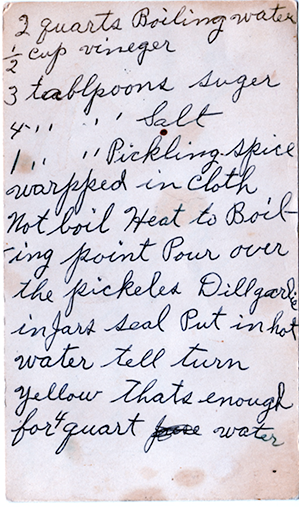 2 quarts Boiling water
½ cup vineger
3 tablpoons suger
4 " " Salt
1 " " Pickling spice
warpped in cloth
Not boil Heat to Boil-
ing point Pour over
the pickeles Dillgarlic
in Jars seal Put in hot
water tell turn
yellow Thats enough
for 4 quart water